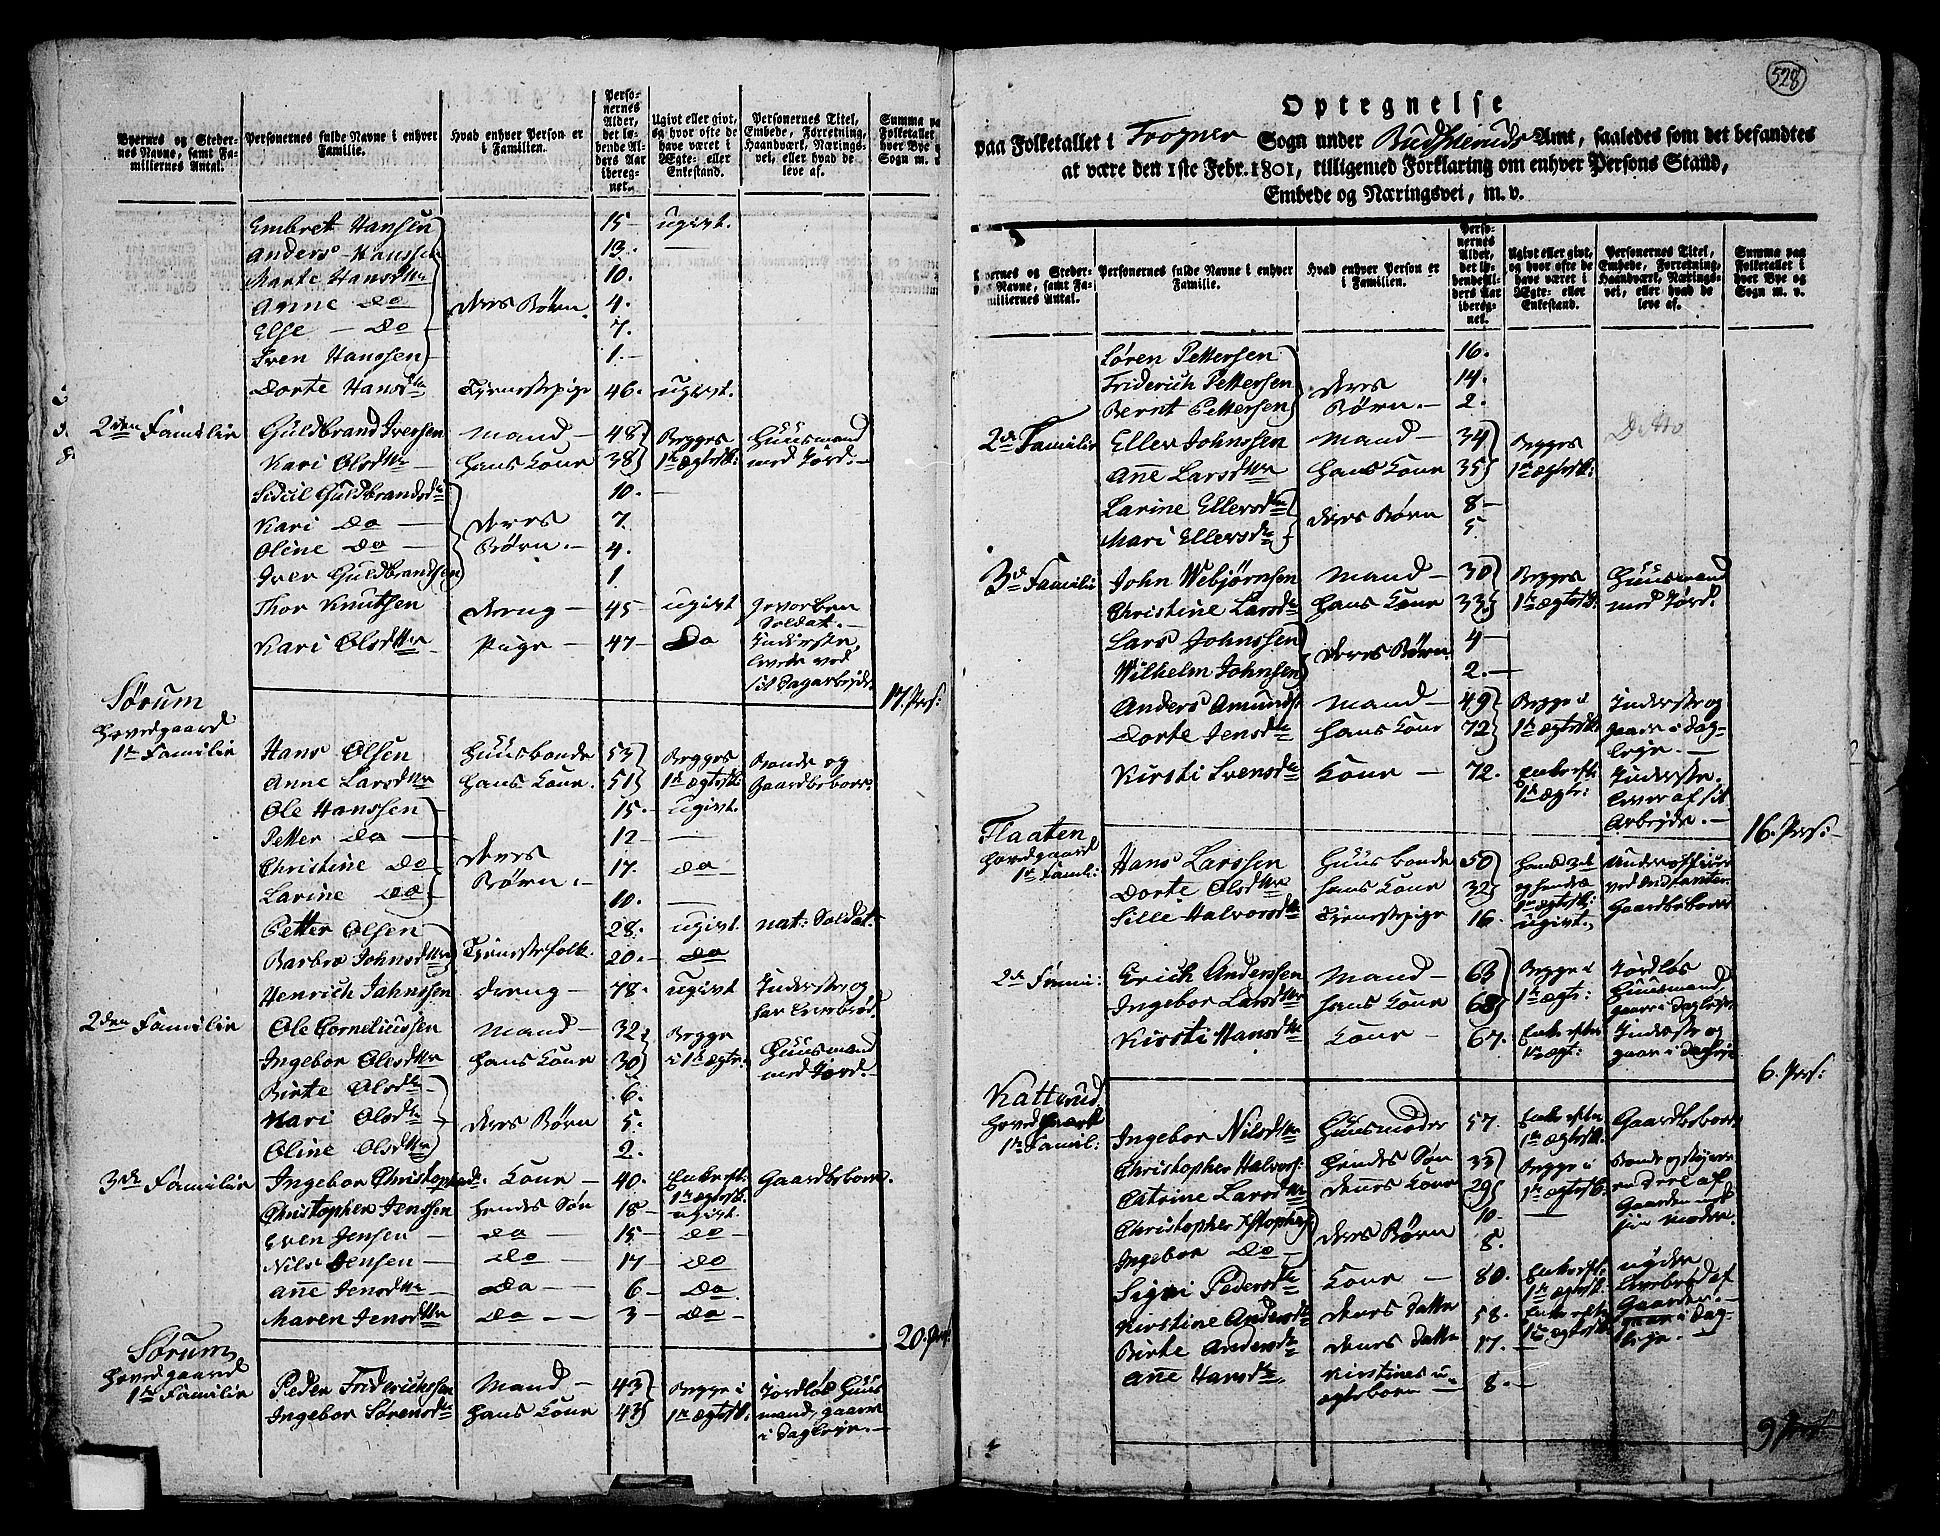 Byernes og Stedernes Navne, samt Familiernes Antal.
Personernes fulde Navne i enhver Familie.
Hvad enhver Person er i Familien.
Personernes Alder, det løbende Alders Aar iberegnet.
Ugivt eller givt, og hvor ofte de have været i Ægte- eller Enkestand.
Personernes Titel, Embede, Forretning, Haandværk, Næringsvei, eller hvad de leve af.
Summa paa Folketallet i hver Bye og Sogn m. v.
Embret Hansen 15 ugivt.
Anders Hanssen 13. —
Marte Hansdtter 10.
Anne do deres Børn 4.
Else — do 7.
Iven Hanssen 1. —
Dorte Hansdtter Tienestepige 46. ugivt.
2den Familie Guldbrand Iversen Mand — 48 Begges Huusmand
Kari Olsdtter — hans Kone 38 1te Ægtesk: med Jord. —
Sidcil Guldbrandsdtr 10. —
Kari do — deres 7.
Oline do — Børn. — 4.
Iver Guldbrandsen 1.
Thor Knutsen Dreng — 45 — ugivt Gevorben Soldat. —
Kari Olsdtter Pige — 47 — do Inderste, levede ved sit Dagarbejde
17. Pers:
Sørum
Hovedgaard
1te Familie Hans Olsen Huusbonde 53 Begges Bonde og
Anne Larsdtter hans Kone. 51 1te Ægtesk: Gaardbeboer.
Ole Hanssen 15. — ugivt.
Petter do 12 —
Christine do deres 17. do
Larine do Børn. — 10. —
Petter Olsen 28. ugivt nat: Soldat.
Barbro Johnsdtter Tienestefolk. 20. — do
Henrich Jahnssen Dreng — 78. ugivt Inderste og
2den Familie Ole Corneliussen Mand — 32 Begge Huusmand
Ingebor Olesdtter hans Kone 30 i 1te Ægte: med Jord. —
Birte Olsdtr 6.
Mari Olsdtr deres Børn 5.
Oline Olsdtter 2.
3de Familie Ingebor Christophersd. Kone — 40. Enke eft: 1te Ægtesk. Gaardbeboer.
Christopher Jenssen hendes Søn 18 — ugivt.
Even Jensen — do — 15 — do —
Nils Jensen — do 17 do
Anne Jensdtter — do — 6 — do
Maren Jensdtter do — — 3 — do —
20. Pers:
Sørum
Hovedgaard
1te Familie Peder Friderichssen Mand — 43 Begge i Jordløs Huus
Ingebor Sørensdtr hans Kone 43 1te Ægtesk. mand, gaaer
i Dagleye. —
528
Optegnelse
paa Folketallet i Trogner Sogn under Budskeruds Amt, saaledes som det befandtes
at være den 1ste Febr. 1801, tilligemed Forklaring om enhver Persons Stand,
Embede og Næringsvei, m. v.
Byernes og Stedernes Navne, samt Familiernes Antal.
Personernes fulde Navne i enhver Familie.
Hvad enhver Person er i Familien.
Personernes Alder, det løbende Alders Aar iberegnet.
Ugivt eller givt, og hvor ofte de have været i Ægte- eller Enkestand.
Personernes Titel, Embede, Forretning, Haandværk, Næringsvei, eller hvad de leve af.
Summa paa Folketallet i hver Bye og Sogn m. v.
Søren Pettersen 16.
Friderich Pettersen deres 14.
Bernt Pettersen Børn. — 2.
2de Familie Eller Johnssen Mand — 34 Begges Ditto
Anne Larsdtter hans Kone 35 1te Ægtesk:
Larine Ellersdtter deres Børn 8 —
Mari Ellersdtr 5
3de Famili John Webjørnsen Mand — 30 Begges Huusmand
Christine Larsdtr hans Kone 33 1te Ægtesk. med Jord.
Lars Johnssen deres Børn 4 —
Wilhelm Johnsen 2. —
Anders Amunds. Mand — 49 Begge i Inderste og
Dorte Jensdtr hans Kone 72 1te Ægtesk. gaaer i Dagleye. —
Kirsti Svensdtr Kone — 72. Enke eft: 1te Ægte: Inderste. lever af sit Arbejde. —
16. Pers: —
Flaaten
Hovedgaard
1te Famil: Hans Larssen Huusbonde 50 hans 2de
Dorte Olsdtter hans Kone 32 og hendes 1te Ægtesk:
Sille Halvorsdtr Tienestepige 16. ugivt. Gaardbeboer
2de Fami: Erich Anderssen Mand — 63 Begge i Jordløs Huusmand
Ingebor Larsdtter hans Kone 68 1te Ægte: gaaer i Dagleye
Kirsti Hansdtr Kone — 67. Enke efter 1te Ægt: Inderste og gaar i Dagleye
6. Pers:
Katterud
Hovedgaard
1te Famil: Ingebor Nilsdtter Huusmoder 57. Enke efter 1te Ægtesk: Gaardbeboer
Christopher Halvors: hendes Søn 33 Begge i Bonde og
Catrine Larsdtter dennes Kone 29 1te Ægtesk: en Deel af Gaarden med sin Moder.
Christopher Xstophers. deres Børn 10 —
Ingebor do — 8.
Signi Pedersdtr Kone — 80. Enke eft: 1te Ægtesk: nyder Levebrød af Gaarden. —
Kirstine Andersdtr dennes Datter 58. Enke efter 1te Ægtesk. gaaer i Dagleye. —
Birte Andersdtr dennes Datter 17. —
Anne Hansdtr. Kirstines uægtebarn — 8. —
9 Pers: